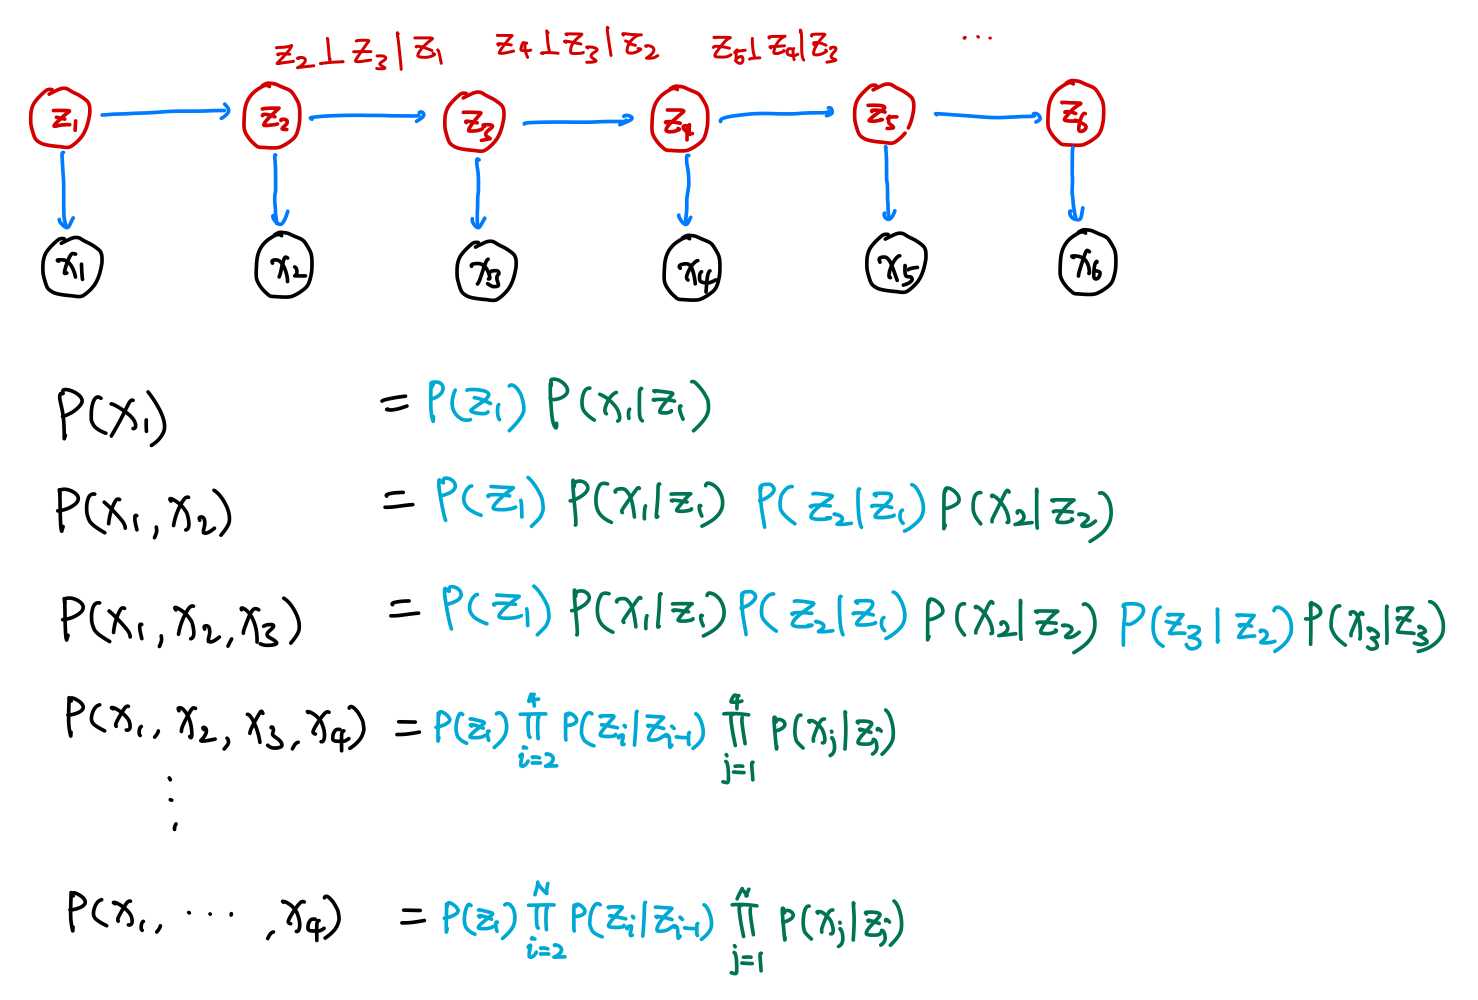 z₂ ⊥ z₃ | z₁ z₄ ⊥ z₃ | z₂ z₅ ⊥ z₄ | z₃ ...
z₁ z₂ z₃ z₄ z₅ z₆
x₁ x₂ x₃ x₄ x₅ x₆
P(x₁) = P(z₁) P(x₁|z₁)
P(x₁, x₂) = P(z₁) P(x₁|z₁) P(z₂|z₁) P(x₂|z₂)
P(x₁, x₂, x₃) = P(z₁) P(x₁|z₁) P(z₂|z₁) P(x₂|z₂) P(z₃|z₂) P(x₃|z₃)
P(x₁, x₂, x₃, x₄) = P(z₁) ∏_{i=2}^{4} P(z_i|z_{i-1}) ∏_{j=1}^{4} P(x_j|z_j)
⋮
P(x₁, ⋯, x₄) = P(z₁) ∏_{i=2}^{N} P(z_i|z_{i-1}) ∏_{j=1}^{N} P(x_j|z_j)